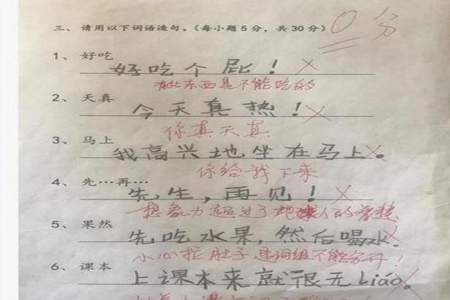 三、请用以下词语造句。(每小题5分,共30分) 0分
1、好吃
好吃个屁!
有些东西是不能吃的
2、天真
今天真热!
你真天真
3、马上
我高兴地坐在马上。
你给我下来
4、先…再…
先生,再见!
想象力超过了地球人的
5、果然
先吃水果,然后喝水
小心拉肚子,
6、课本
上课本来就很无Liáo。